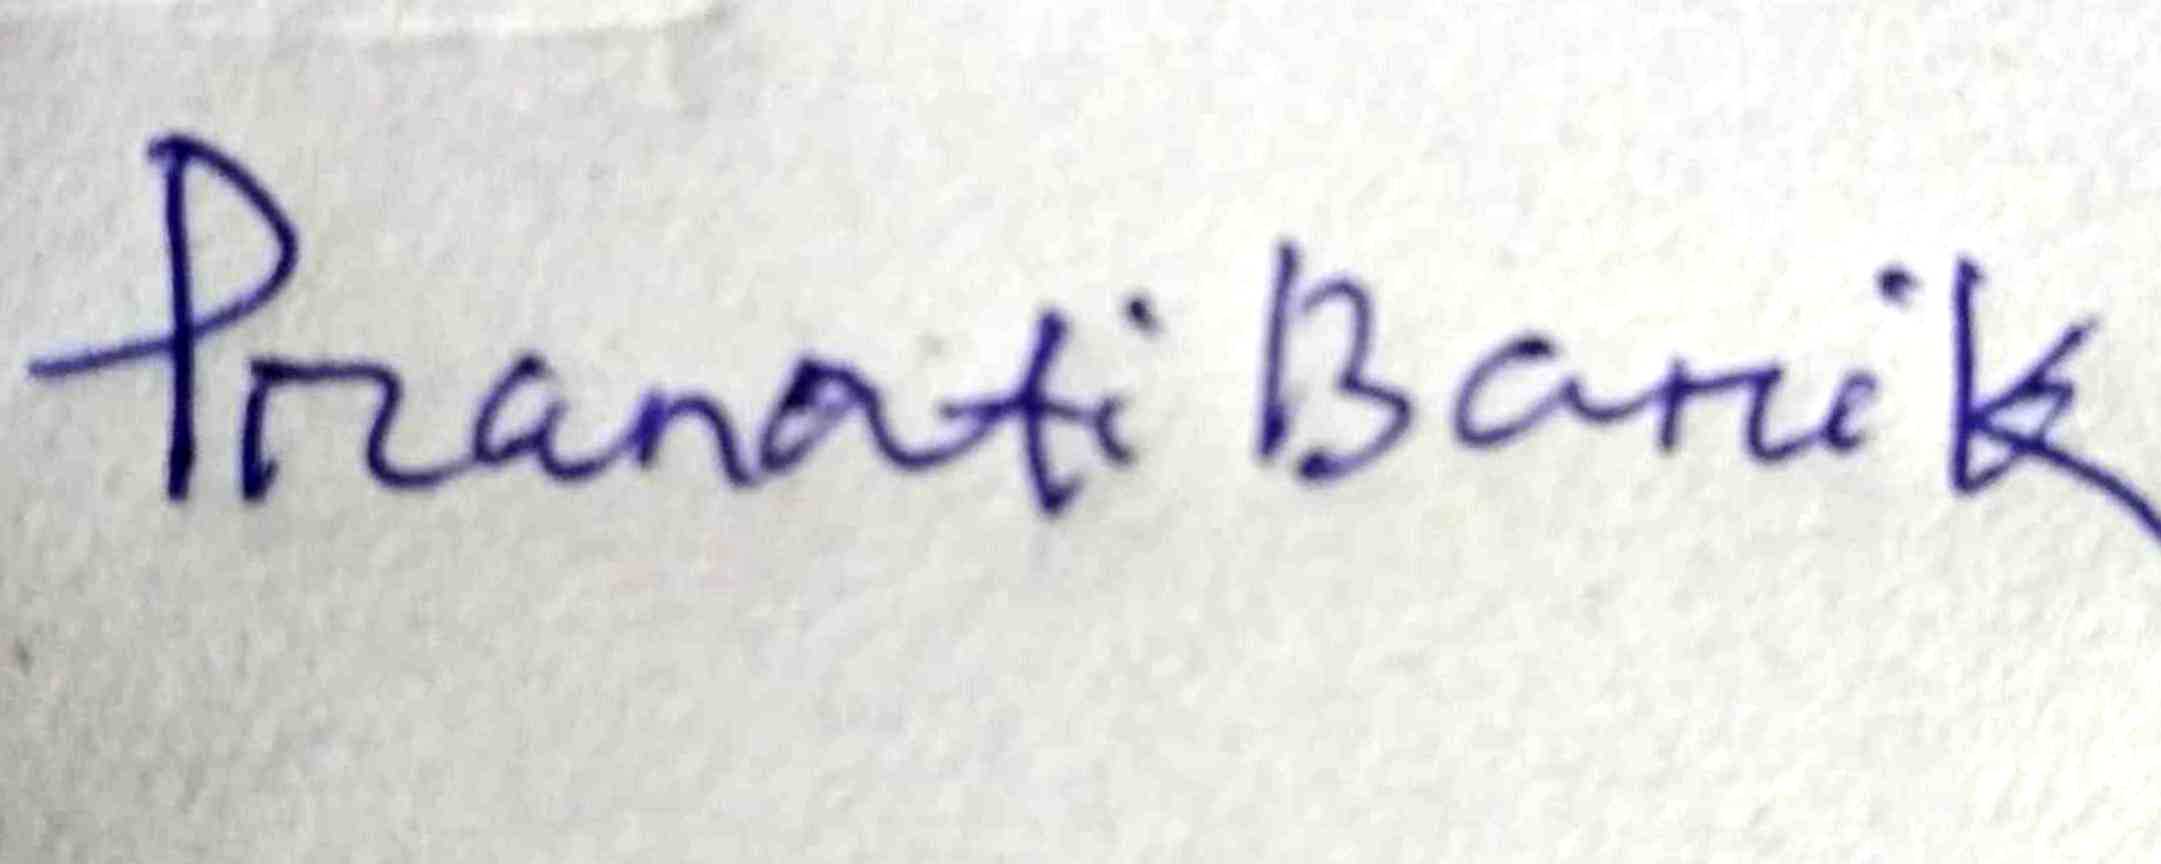 Pranati Barik